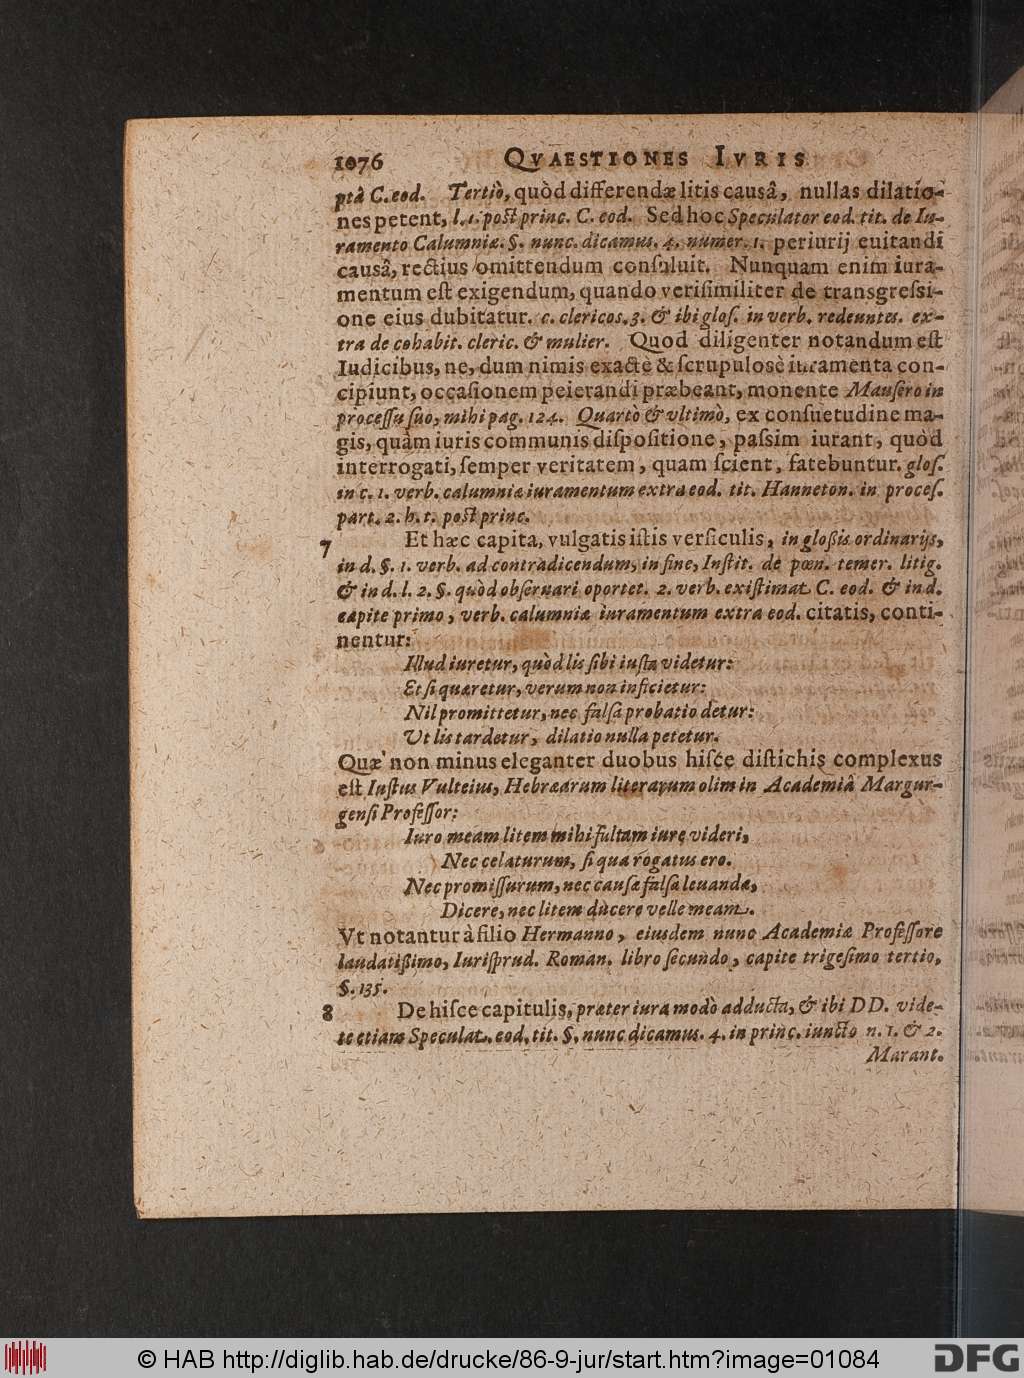 1076 QVAESTIONES IVRIS
ptâ C. eod. Tertiò, quòd differendæ litis causâ, nullas dilatio-
nes petent, l. 1. post princ. C. eod. Sed hoc Speculator eod. tit. de Iu-
ramento Calumniæ. §. nunc. dicamus. 4. numer. 1. periurij euitandi
causâ, rectius omittendum consuluit. Nunquam enim iura-
mentum est exigendum, quando verisimiliter de transgressi-
one eius dubitatur. c. clericos. 3. & ibi glos. in verb. redeuntes. ex-
tra de cohabit. cleric. & mulier. Quod diligenter notandum est
Iudicibus, ne, dum nimis exactè & scrupulosè iuramenta con-
cipiunt, occasionem peierandi præbeant, monente Mausero in
processu suo, mihi pag. 124. Quartò & vltimò, ex consuetudine ma-
gis, quàm iuris communis dispositione, passim iurant, quòd
interrogati, semper veritatem, quam scient, fatebuntur. glos.
in c. 1. verb. calumniæ iuramentum extra eod. tit. Hanneton. in proces.
part. 2. h. t. post princ.
7 Et hæc capita, vulgatis istis versiculis, in glossis ordinarijs,
in d. §. 1. verb. ad contradicendum, in fine, Instit. de pœn. temer. litig.
& in d. l. 2. §. quòd obseruari oportet. 2. verb. existimat C. eod. & in d.
capite primo, verb. calumniæ iuramentum extra eod. citatis, conti-
nentur:
Illud iuretur, quòd lis sibi iusta videtur:
Et si quæretur, verum non inficietur:
Nil promittetur, nec falsa probatio detur:
Vt lis tardetur, dilatio nulla petetur.
Quæ non minus eleganter duobus hisce distichis complexus
est Iustus Vulteius, Hebræarum literarum olim in Academiâ Margur-
gensi Professor:
Iuro meam litem mihi fultam iure videri,
Nec celaturum, si qua rogatus ero.
Nec promissurum, nec causæ falsa leuandæ,
Dicere, nec litem ducere velle meam.
Vt notantur à filio Hermanno, eiusdem nunc Academiæ Professore
laudatissimo, Iurisprud. Roman. libro secundo, capite trigesimo tertio,
§. 135.
8 De hisce capitulis, præter iura modò adducta, & ibi DD. vide-
te etiam Speculat. eod. tit. §. nunc dicamus. 4. in princ. iuncto n. 1. & 2.
Marant.
© HAB http://diglib.hab.de/drucke/86-9-jur/start.htm?image=01084
DFG